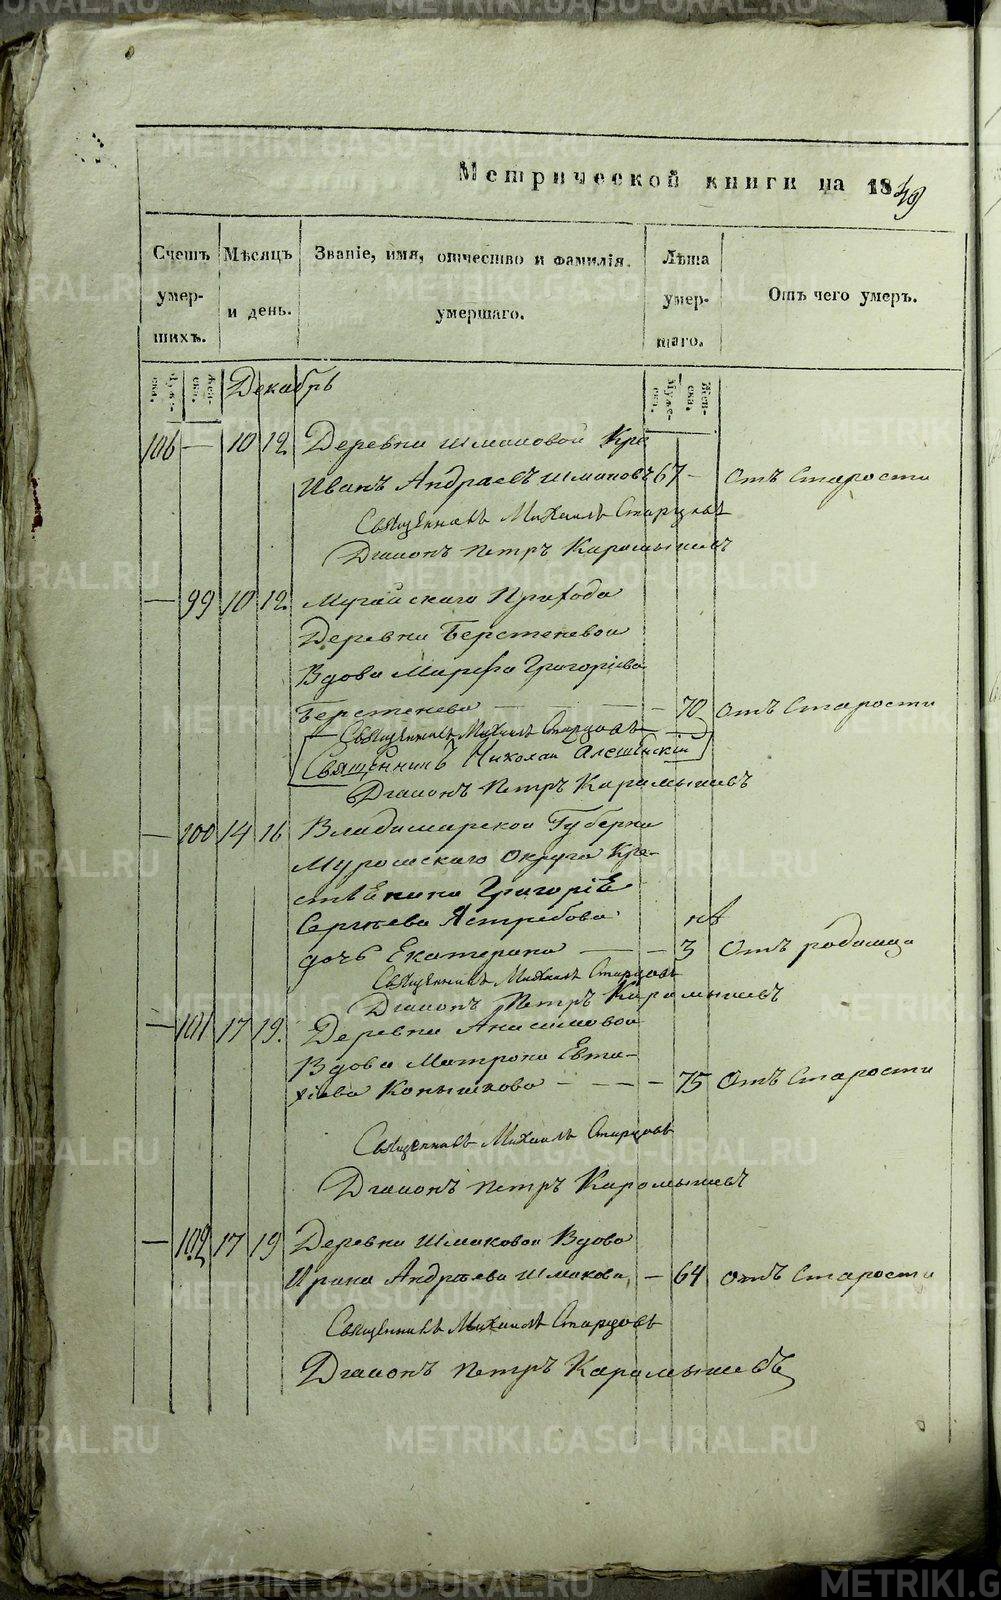 Метрической книги на 1849
Счетъ умер- шихъ.
Мѣсяцъ и день.
Званіе, имя, отчество и фамилія умершаго.
Лѣта умер- шаго.
Отъ чего умеръ.
Муже- ска. Жен- ска. Декабрь Муже- ска. Жен- ска.
106 — 10 12 Деревни Шмаковой Кре
Иванъ Андраевъ Шмаковъ 67 — Отъ Старости
Священникъ Михаилъ Старцовъ
Дiаконъ Петръ Карамышевъ
— 99 10 12. Мугайскаго Прихода
Деревни Берстеневой
Вдова Марфа Григоріева
Берстенева — — — — 70 Отъ Старости
Священникъ Михаилъ Старцовъ
Священникъ Николай
Дiаконъ Петръ Карамышевъ
— 100 14 16 Владимирской Губерни
Муромскаго Округа Кре-
стьЕнина ГригоріЕ
Сергѣева Ястребова нѣ
дочь Екатерина — — — 3 Отъ родимца
Священникъ Михаилъ Старцовъ
Дiаконъ Петръ Карамышевъ
— 101 17 19. Деревни Анисимовой
Вдова Матрона Евти-
хіева Копышкова — — — 75 Отъ Старости
Священникъ Михаилъ Старцовъ
Дiаконъ Петръ Карамышевъ
— 102 17 19 Деревни Шмаковой Вдова
Ирина Андрѣева Шмакова, — 64 Отъ Старости
Священникъ Михаилъ Старцовъ
Дiаконъ Петръ Карамышевъ
METRIKI.GASO-URAL.RU